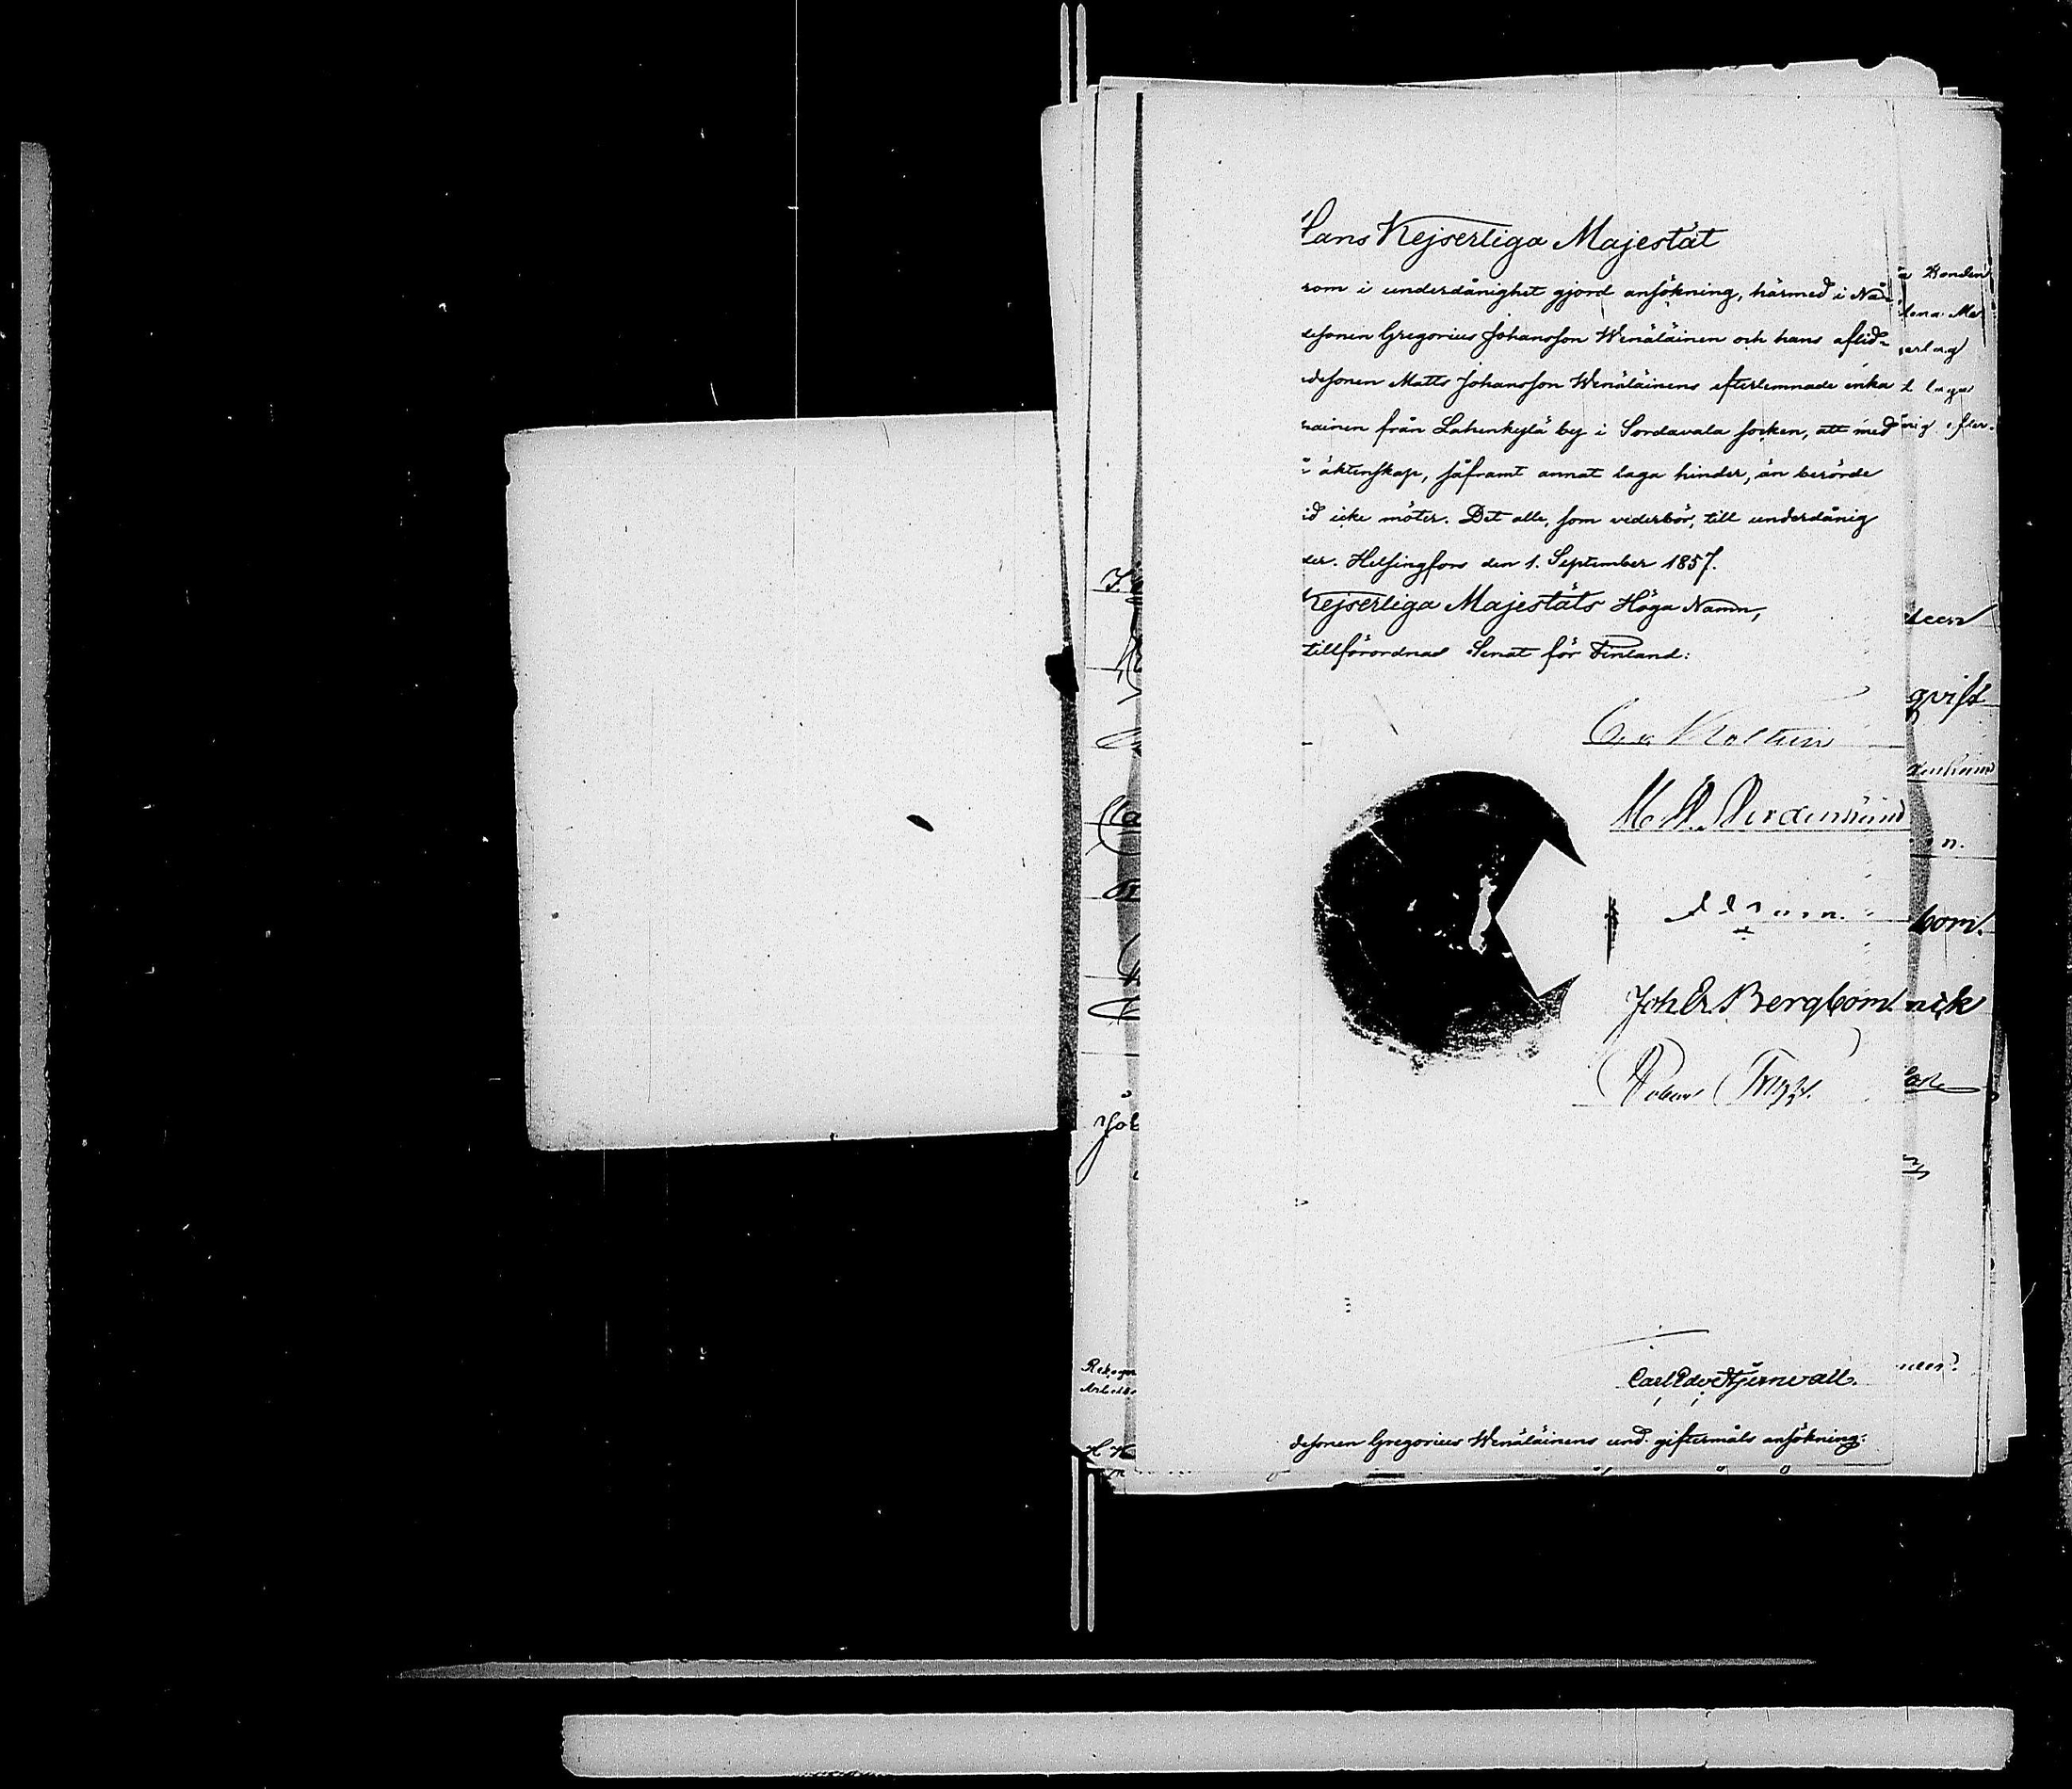 Hans Kejserliga Majestät
som i underdånighet gjord ansökning, härmed i Nå-
desonen Gregorius Johansson Wenäläinen och hans aflid-
desonen Matts Johansson Wenäläinens efterlemnade enka
nainen från Lahenkylä by i Sordavala socken, att med
i äktenskap, såframt annat laga hinder, än berörde
id icke möter. Det alle, som vederbör, till underdånig
der. Helsingfors den 1. September 1857.
Kejserliga Majestäts Höga Namn,
tillförordnad Senat för Finland:
M. W. Nordenheim
Joh. Er. Bergbom.
Robert Trapp.
Carl Edv Stjernvall.
desonen Gregorius Wenäläinens und. giftermåls ansökning.
a Bonden
laga
qvist
bom.
nick